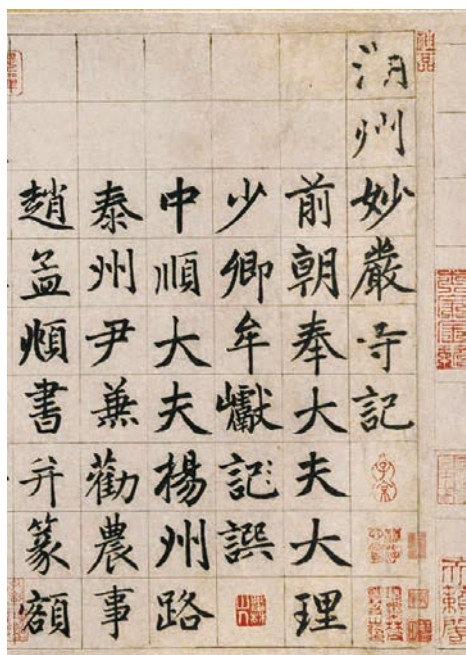 湖州妙嚴寺記
前朝奉大夫大理
少卿牟巘記撰
中順大夫楊州路
泰州尹兼勸農事
趙孟頫書并篆額